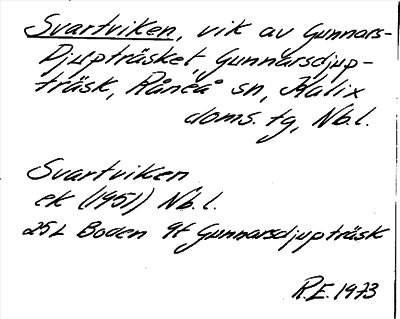 Svartviken, vik av Gunnars-
Djupträsket, Gunnarsdjup-
träsk, Råneå sn, Kalix
doms. tg, Nb.l.
Svartviken
ek (1951) Nb.l.
25L Boden 9f Gunnarsdjupträsk
R.E. 1973